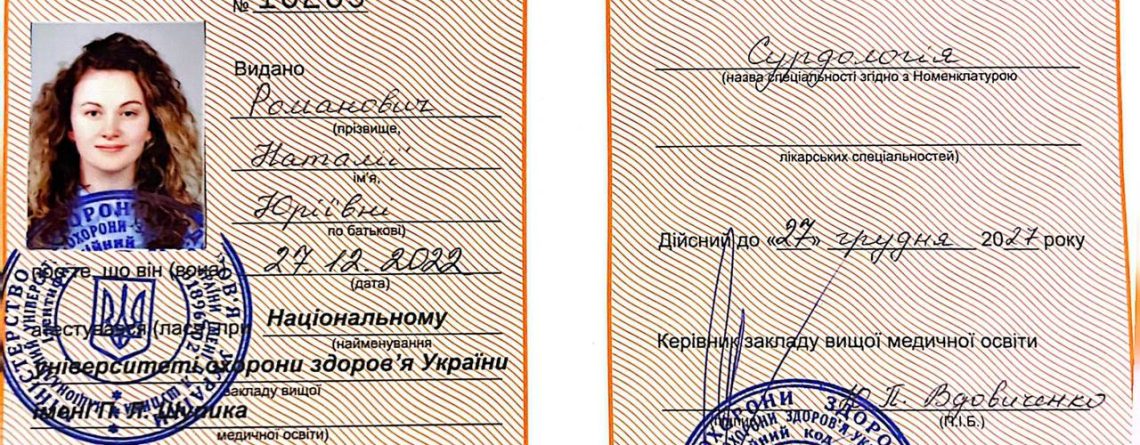 №
Видано
Романович
(прізвище,
Наталії
ім'я,
Юріївні
по батькові)
27.12.2022
(дата)
про те, що він (вона)
атестувався (лась) при Національному
(найменування
університеті охорони здоров'я України
закладу вищої
імені П. Л. Шупика
медичної освіти)
Сурдологія
(назва спеціальності згідно з Номенклатурою
лікарських спеціальностей)
Дійсний до «27» грудня 2027 року
Керівник закладу вищої медичної освіти
Ю. П. Вдовиченко
(П.І.Б.)